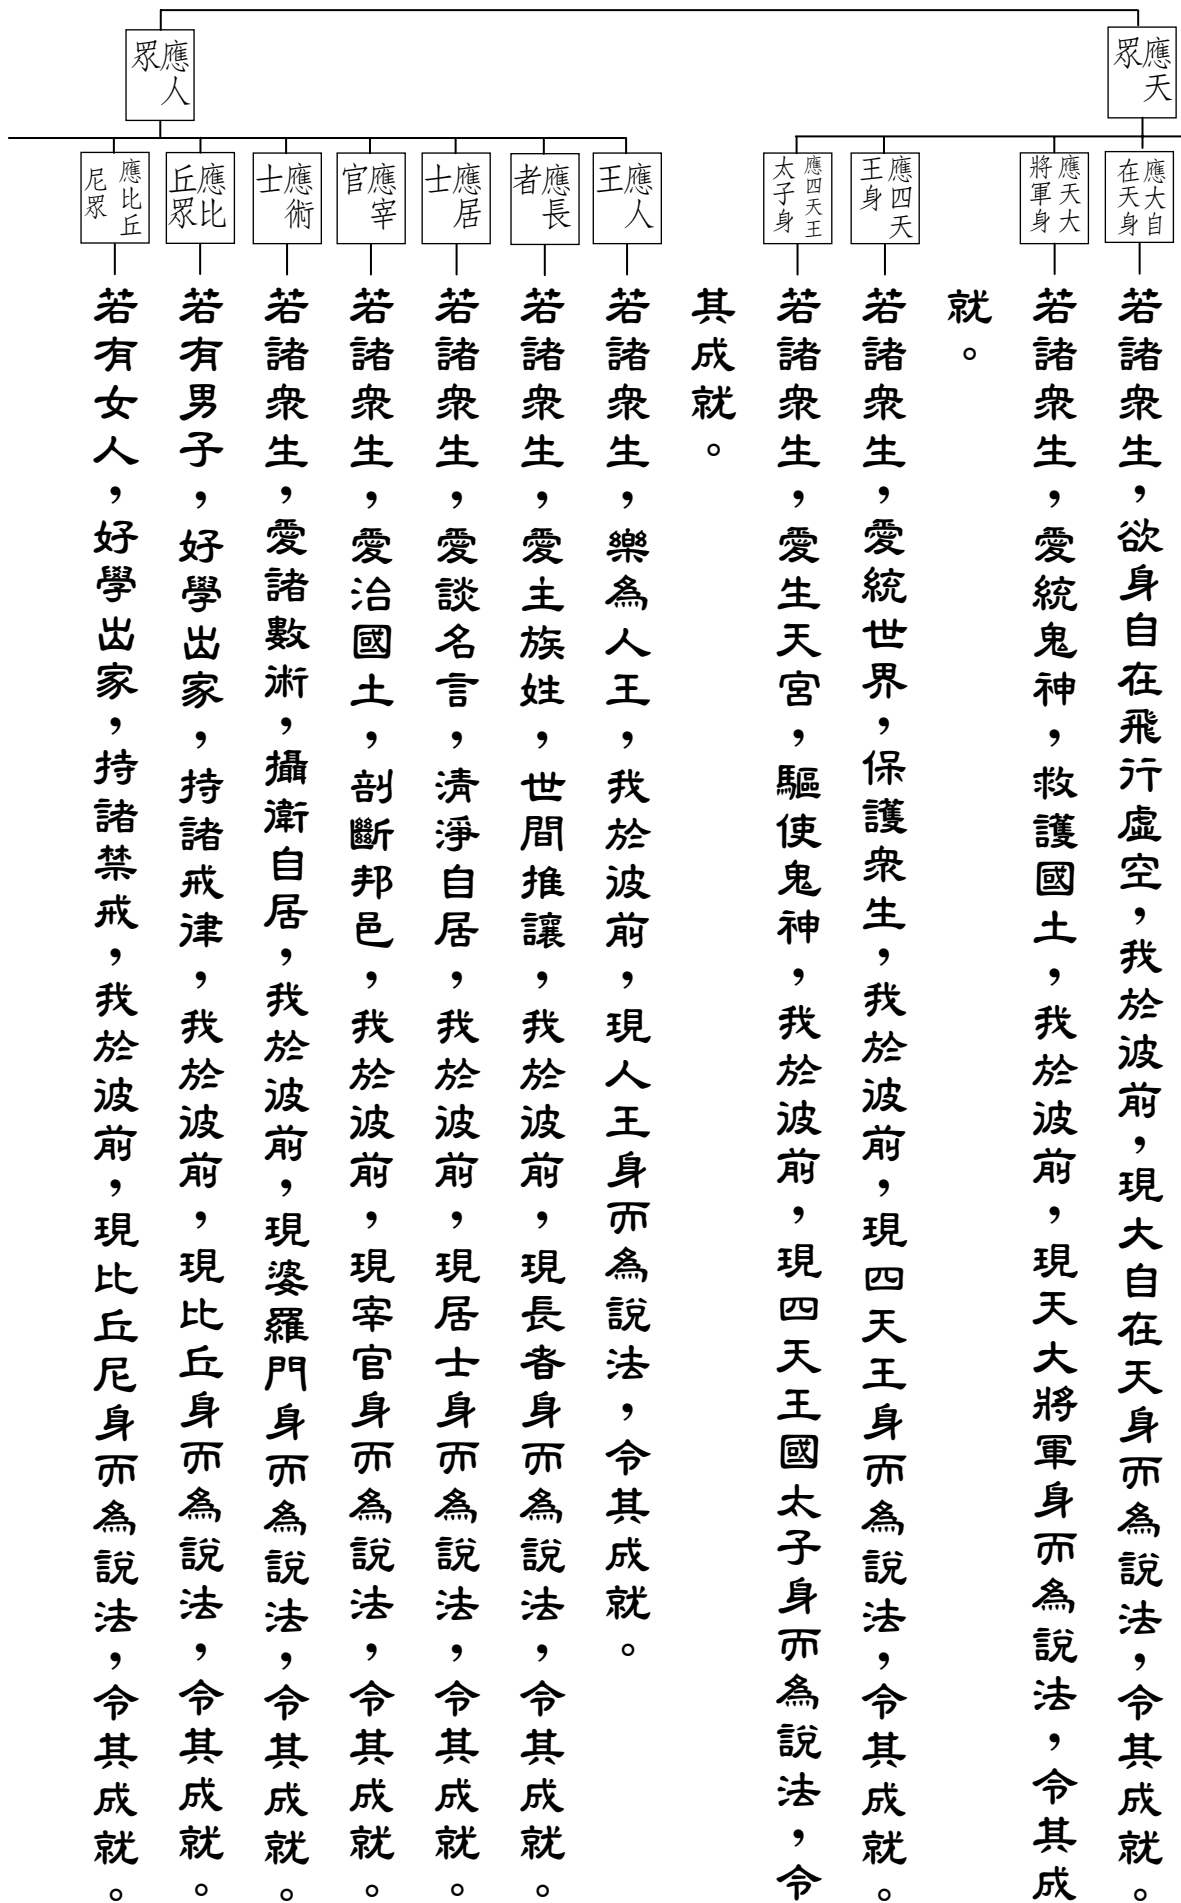 應天眾
應大自在天身
若諸衆生，欲身自在飛行虛空，我於彼前，現大自在天身而為說法，令其成就。
應天大將軍身
若諸衆生，愛統鬼神，救護國土，我於彼前，現天大將軍身而為說法，令其成
就。
應四天王身
若諸衆生，愛統世界，保護衆生，我於彼前，現四天王身而為說法，令其成就。
應四天王太子身
若諸衆生，愛生天宮，驅使鬼神，我於彼前，現四天王國太子身而為說法，令
其成就。
應人眾
應人王
若諸衆生，樂為人王，我於彼前，現人王身而為說法，令其成就。
應長者
若諸衆生，愛主族姓，世間推讓，我於彼前，現長者身而為說法，令其成就。
應居士
若諸衆生，愛談名言，清淨自居，我於彼前，現居士身而為說法，令其成就。
應宰官
若諸衆生，愛治國土，剖斷邦邑，我於彼前，現宰官身而為說法，令其成就。
應術士
若諸衆生，愛諸數術，攝衛自居，我於彼前，現婆羅門身而為說法，令其成就。
應比丘眾
若有男子，好學出家，持諸戒律，我於彼前，現比丘身而為說法，令其成就。
應比丘尼眾
若有女人，好學出家，持諸禁戒，我於彼前，現比丘尼身而為說法，令其成就。